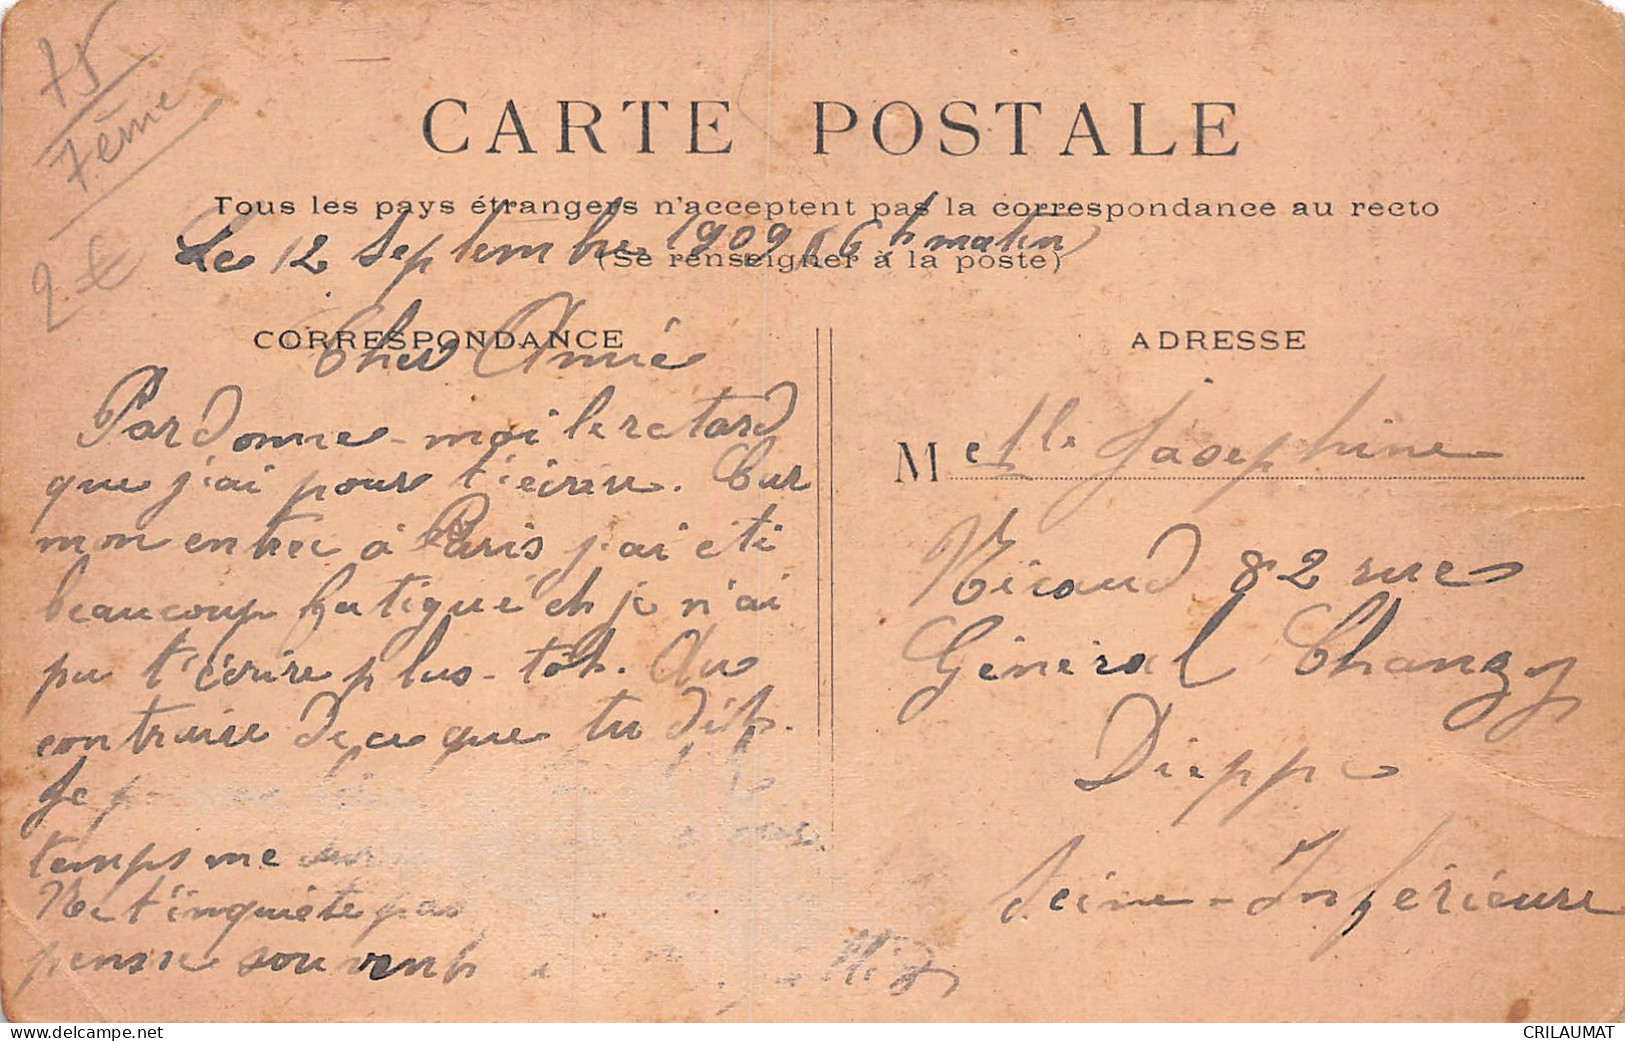 75
7.ème
2.€
CARTE POSTALE
Tous les pays étrangers n'acceptent pas la correspondance au recto
Le 12 Septembre 1909, 6 h matin
(Se renseigner à la poste)
CORRESPONDANCE
Cher Amie
Pardonne-moi le retard
que j'ai pour t'écrire. Cur
mon entrée à Paris j'ai été
beaucoup fatigué et je n'ai
pu t'écrire plus-tôt. Au
contraire de ce que tu dis.
Je
temps me
Ne t'inquiéte pas
pense souvent
ADRESSE
Melle Josephine
Nicaud 82 rue
Général Chanzy
Dieppe
Seine-Inférieure
CRILAUMAT